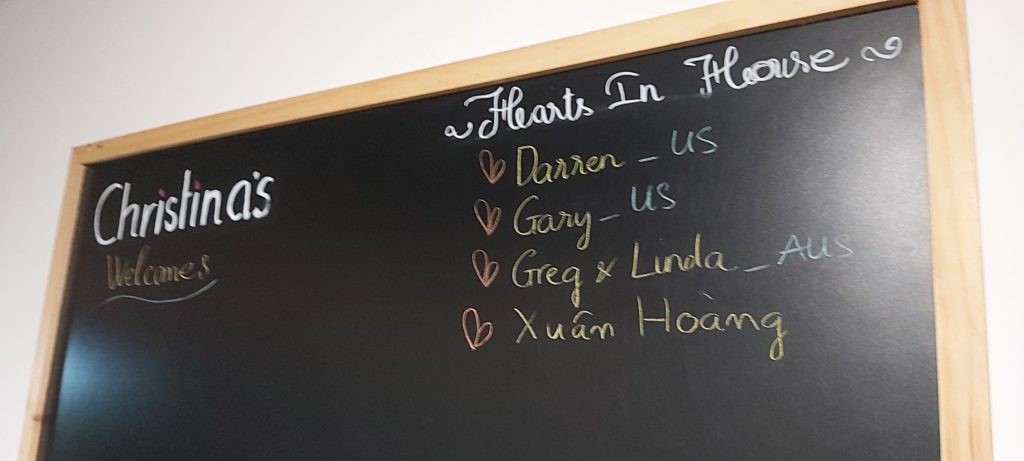 Christina's
Welcomes
~ Hearts In House ~
Darren - US
Gary - US
Greg & Linda - AUS
Xuân Hoàng